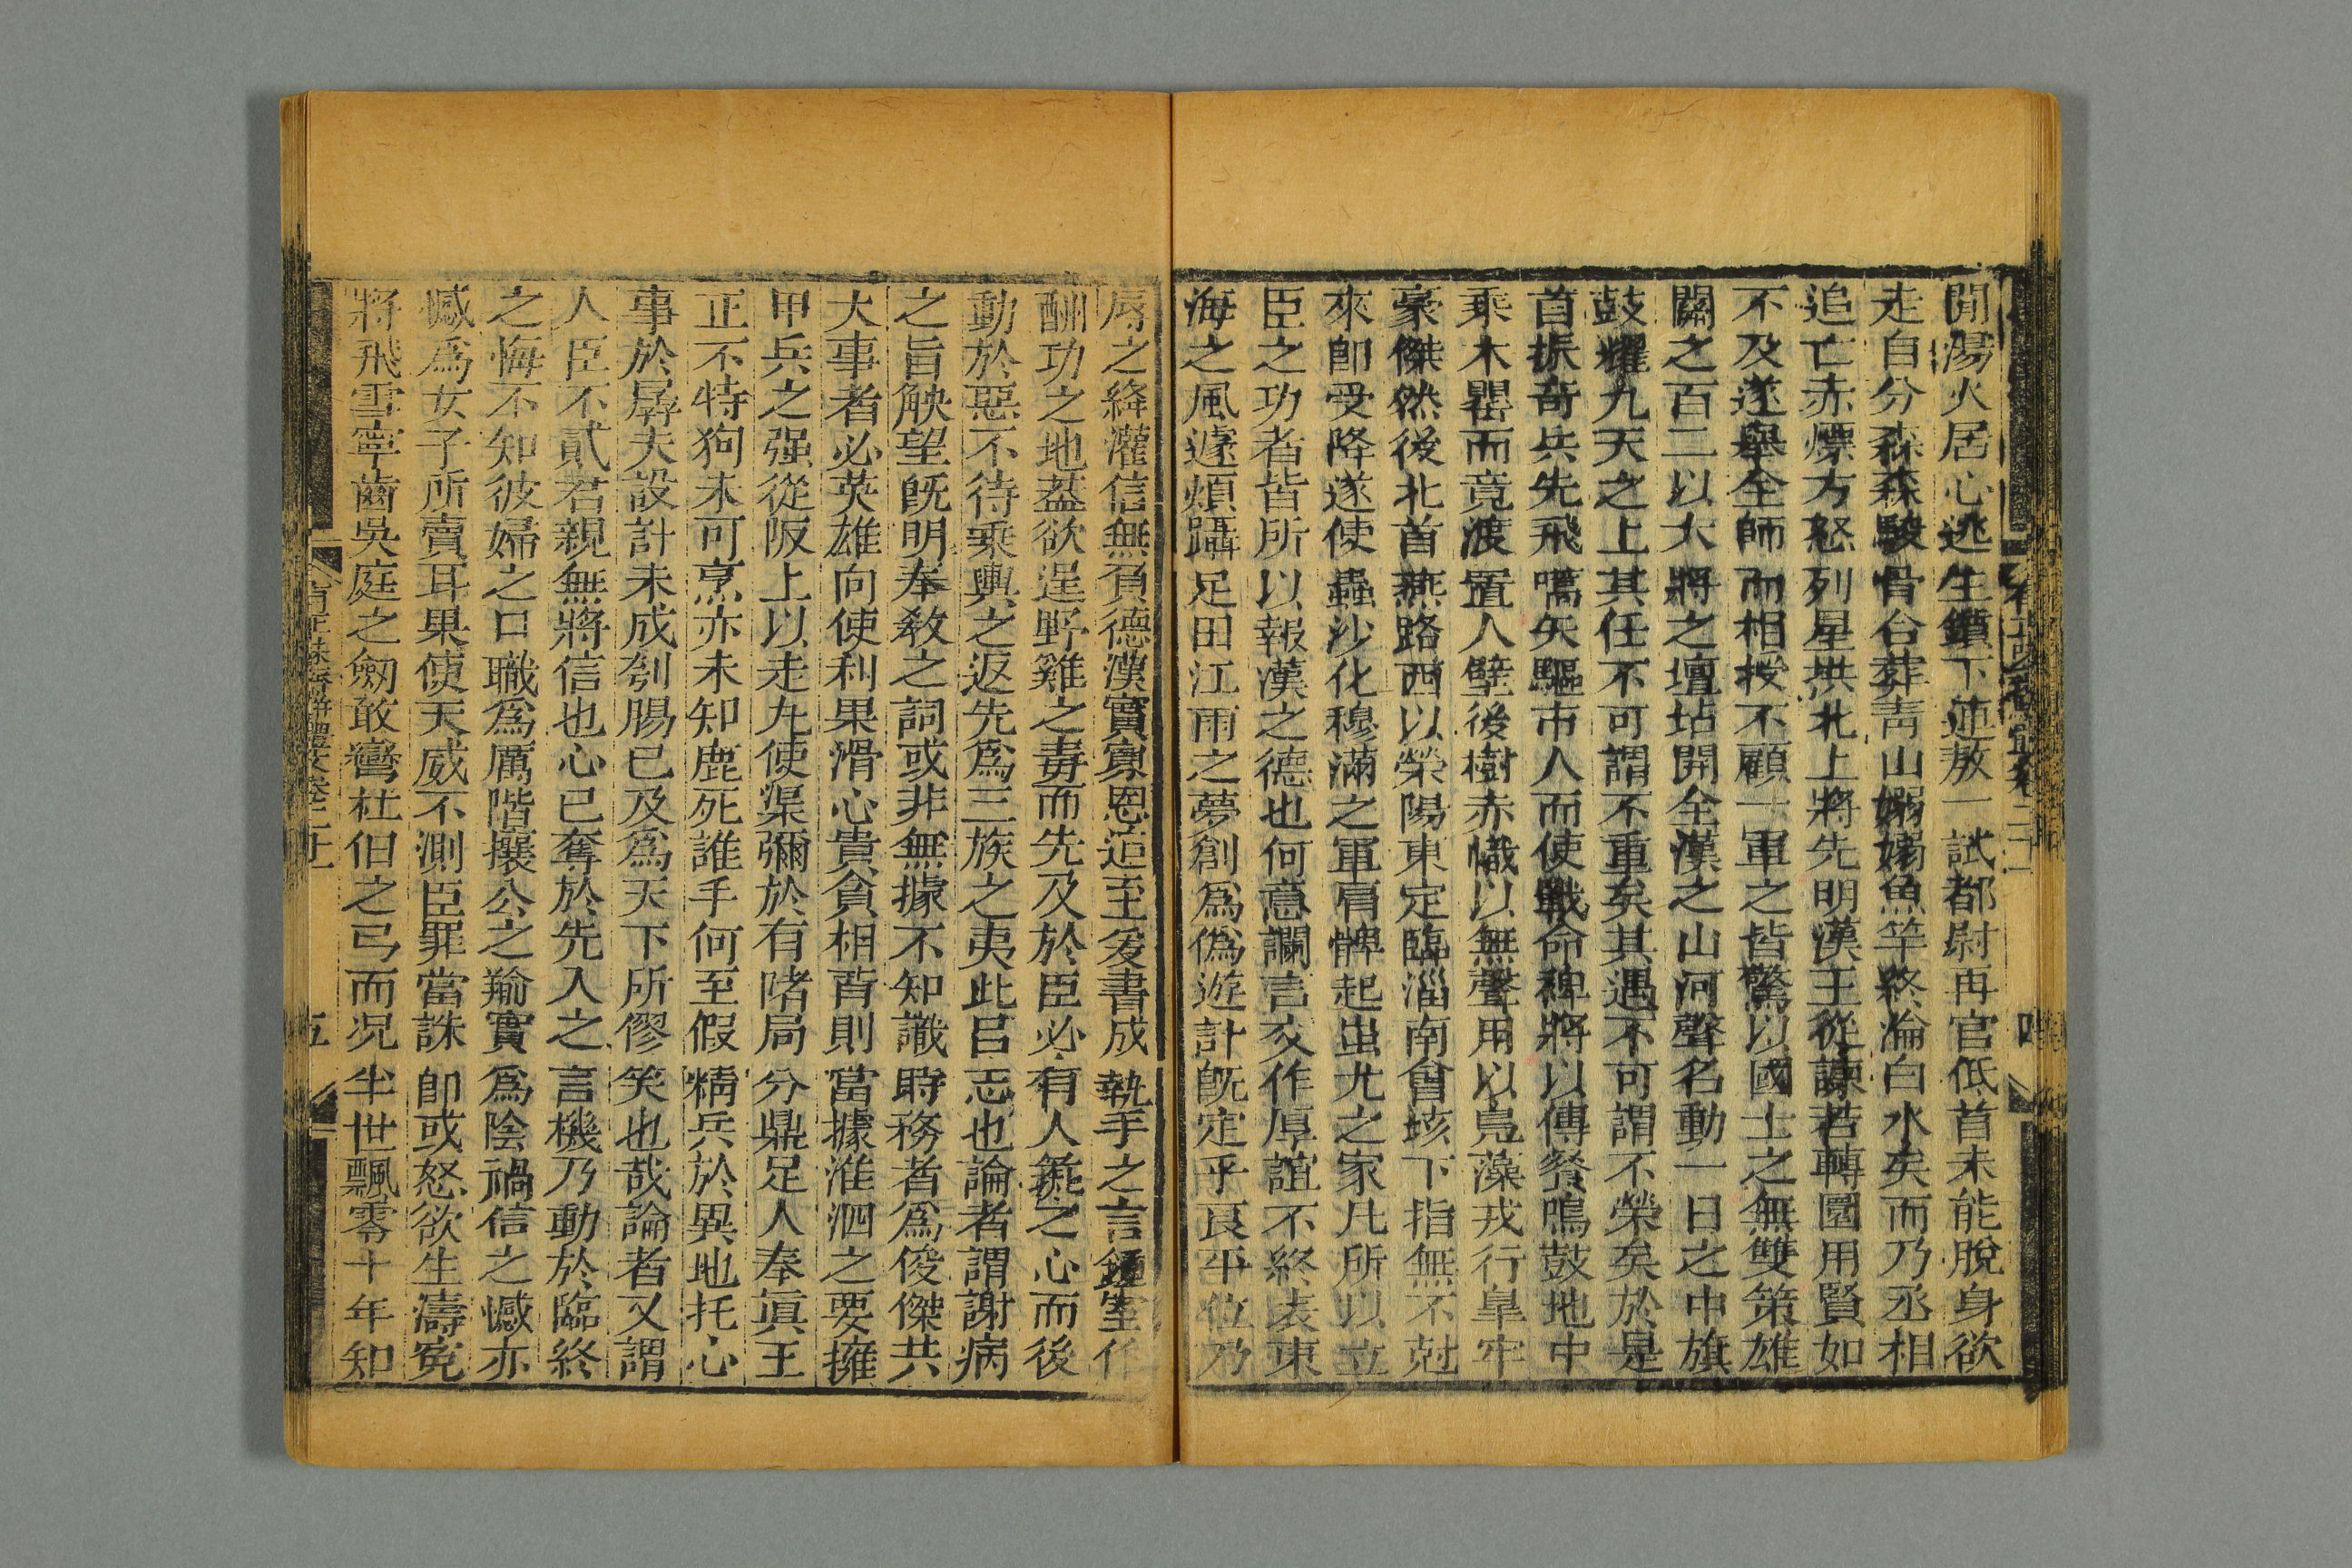 閒湯火居心逃生鑕下連敖一試都尉再官低首未能脫身欲
走自分森森駿骨台葬靑山嫋嫋魚竿終淪白水矣而乃丞相
追亡赤熛方怒列星拱北上將先明漢王從諫若轉圜用賢如
不及遂舉全師而相授不顧一軍之皆驚以國士之無雙策雄
關之百二以大將之壇坫開全漢之山河聲名動一日之中旗
鼓耀九天之上其任不可謂不重矣其遇不可謂不榮矣於是
首振奇兵先飛嚆矢驅市人而使戰命裨將以傳餐鳴鼓地中
乘木罌而竟渡置人壁後樹赤幟以無聲用以鳧藻戎行皐牢
豪傑然後北首燕路西以榮陽東定臨淄南會垓下指無不尅
來卽受降遂使蟲沙化穆滿之軍肩髀起蚩尤之家凡所以立
臣之功者皆所以報漢之德也何意讕言交作厚誼不終表東
海之風遽煩躡足田江雨之夢創爲僞遊計旣定乎良平位乃
辱之絳灌信無負德漢實寡恩迨至爰書成執手之言鍾室作
酬功之地葢欲逞野雞之毒而先及於臣必有人彘之心而後
動於惡不待乘輿之返先爲三族之夷此呂忌也論者謂謝病
之旨觖望旣明奉敎之詞或非無據不知識時務者爲俊傑共
大事者必英雄向使利果滑心貴貪相背則當據淮泗之要擁
甲兵之强從阪上以走丸使渠彌於有啫局分鼎足人奉眞王
正不特狗未可烹亦未知鹿死誰手何至假精兵於異地托心
事於孱夫設計未成刳腸已及爲天下所僇笑也哉論者又謂
人臣不貳君親無將信也心已奪於先入之言機乃動於臨終
之悔不知彼婦之口職爲厲階攘公之羭實爲陰禍信之憾亦
憾爲女子所賣耳果使天威不測臣罪當誅卽或怒欲生濤寃
將飛雪寧齒吳庭之劒敢彎杜伯之弓而况半世飄零十年知